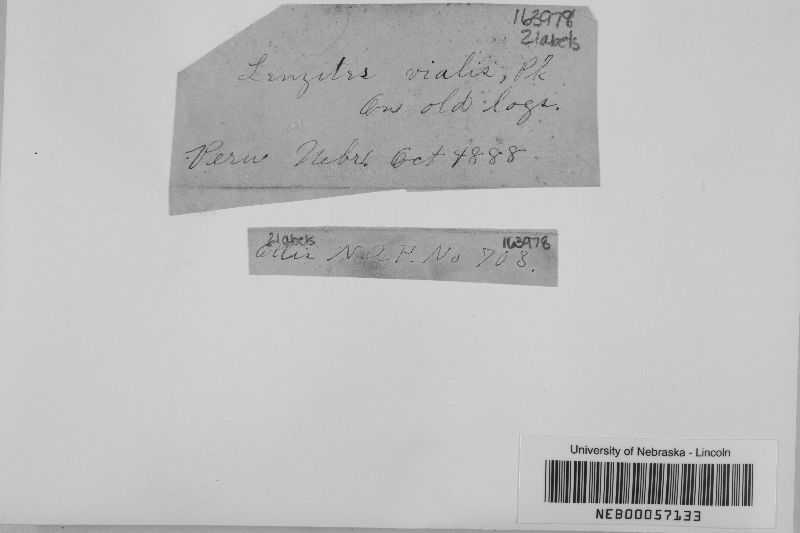 163978
2 labels
Lenzites vialis, Pk
On old logs.
Peru Nebr. Oct 1888
2 labels
163978
Ellis N.A.F. No 708.
University of Nebraska - Lincoln
NEB00057133